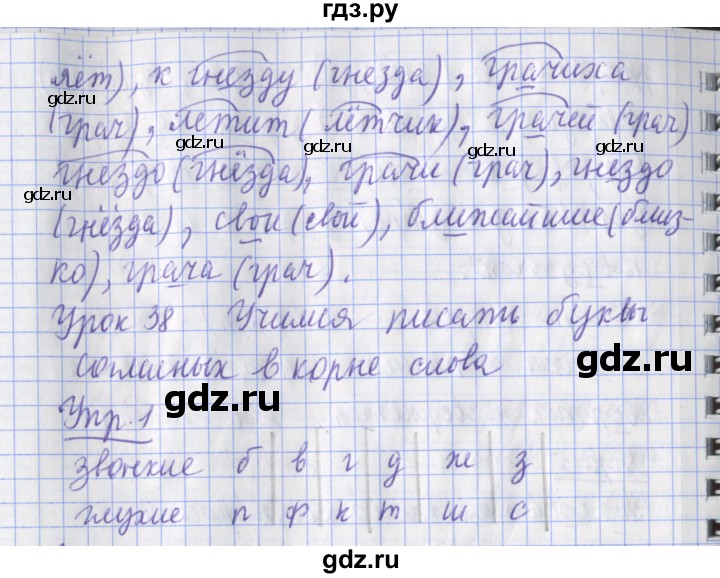 гдз.ру
лёт), к гнезду (гнезда), грачиха
gdz.ru gdz.ru
(грач), летит (лётчик), грачей (грач)
gdz.ru gdz.ru
гнездо (гнёзда), грачи (грач), гнездо
gdz.ru gdz.ru
(гнёзда), свои (свой), ближайшие (близ-
ко), грача (грач).
gdz.ru gdz.ru
Урок 38 Учимся писать буквы
согласных в корне слова
gdz.ru gdz.ru
Упр. 1
звонкие б в г д ж з
gdz.ru gdz.ru
глухие п ф к т ш с
gdz.ru